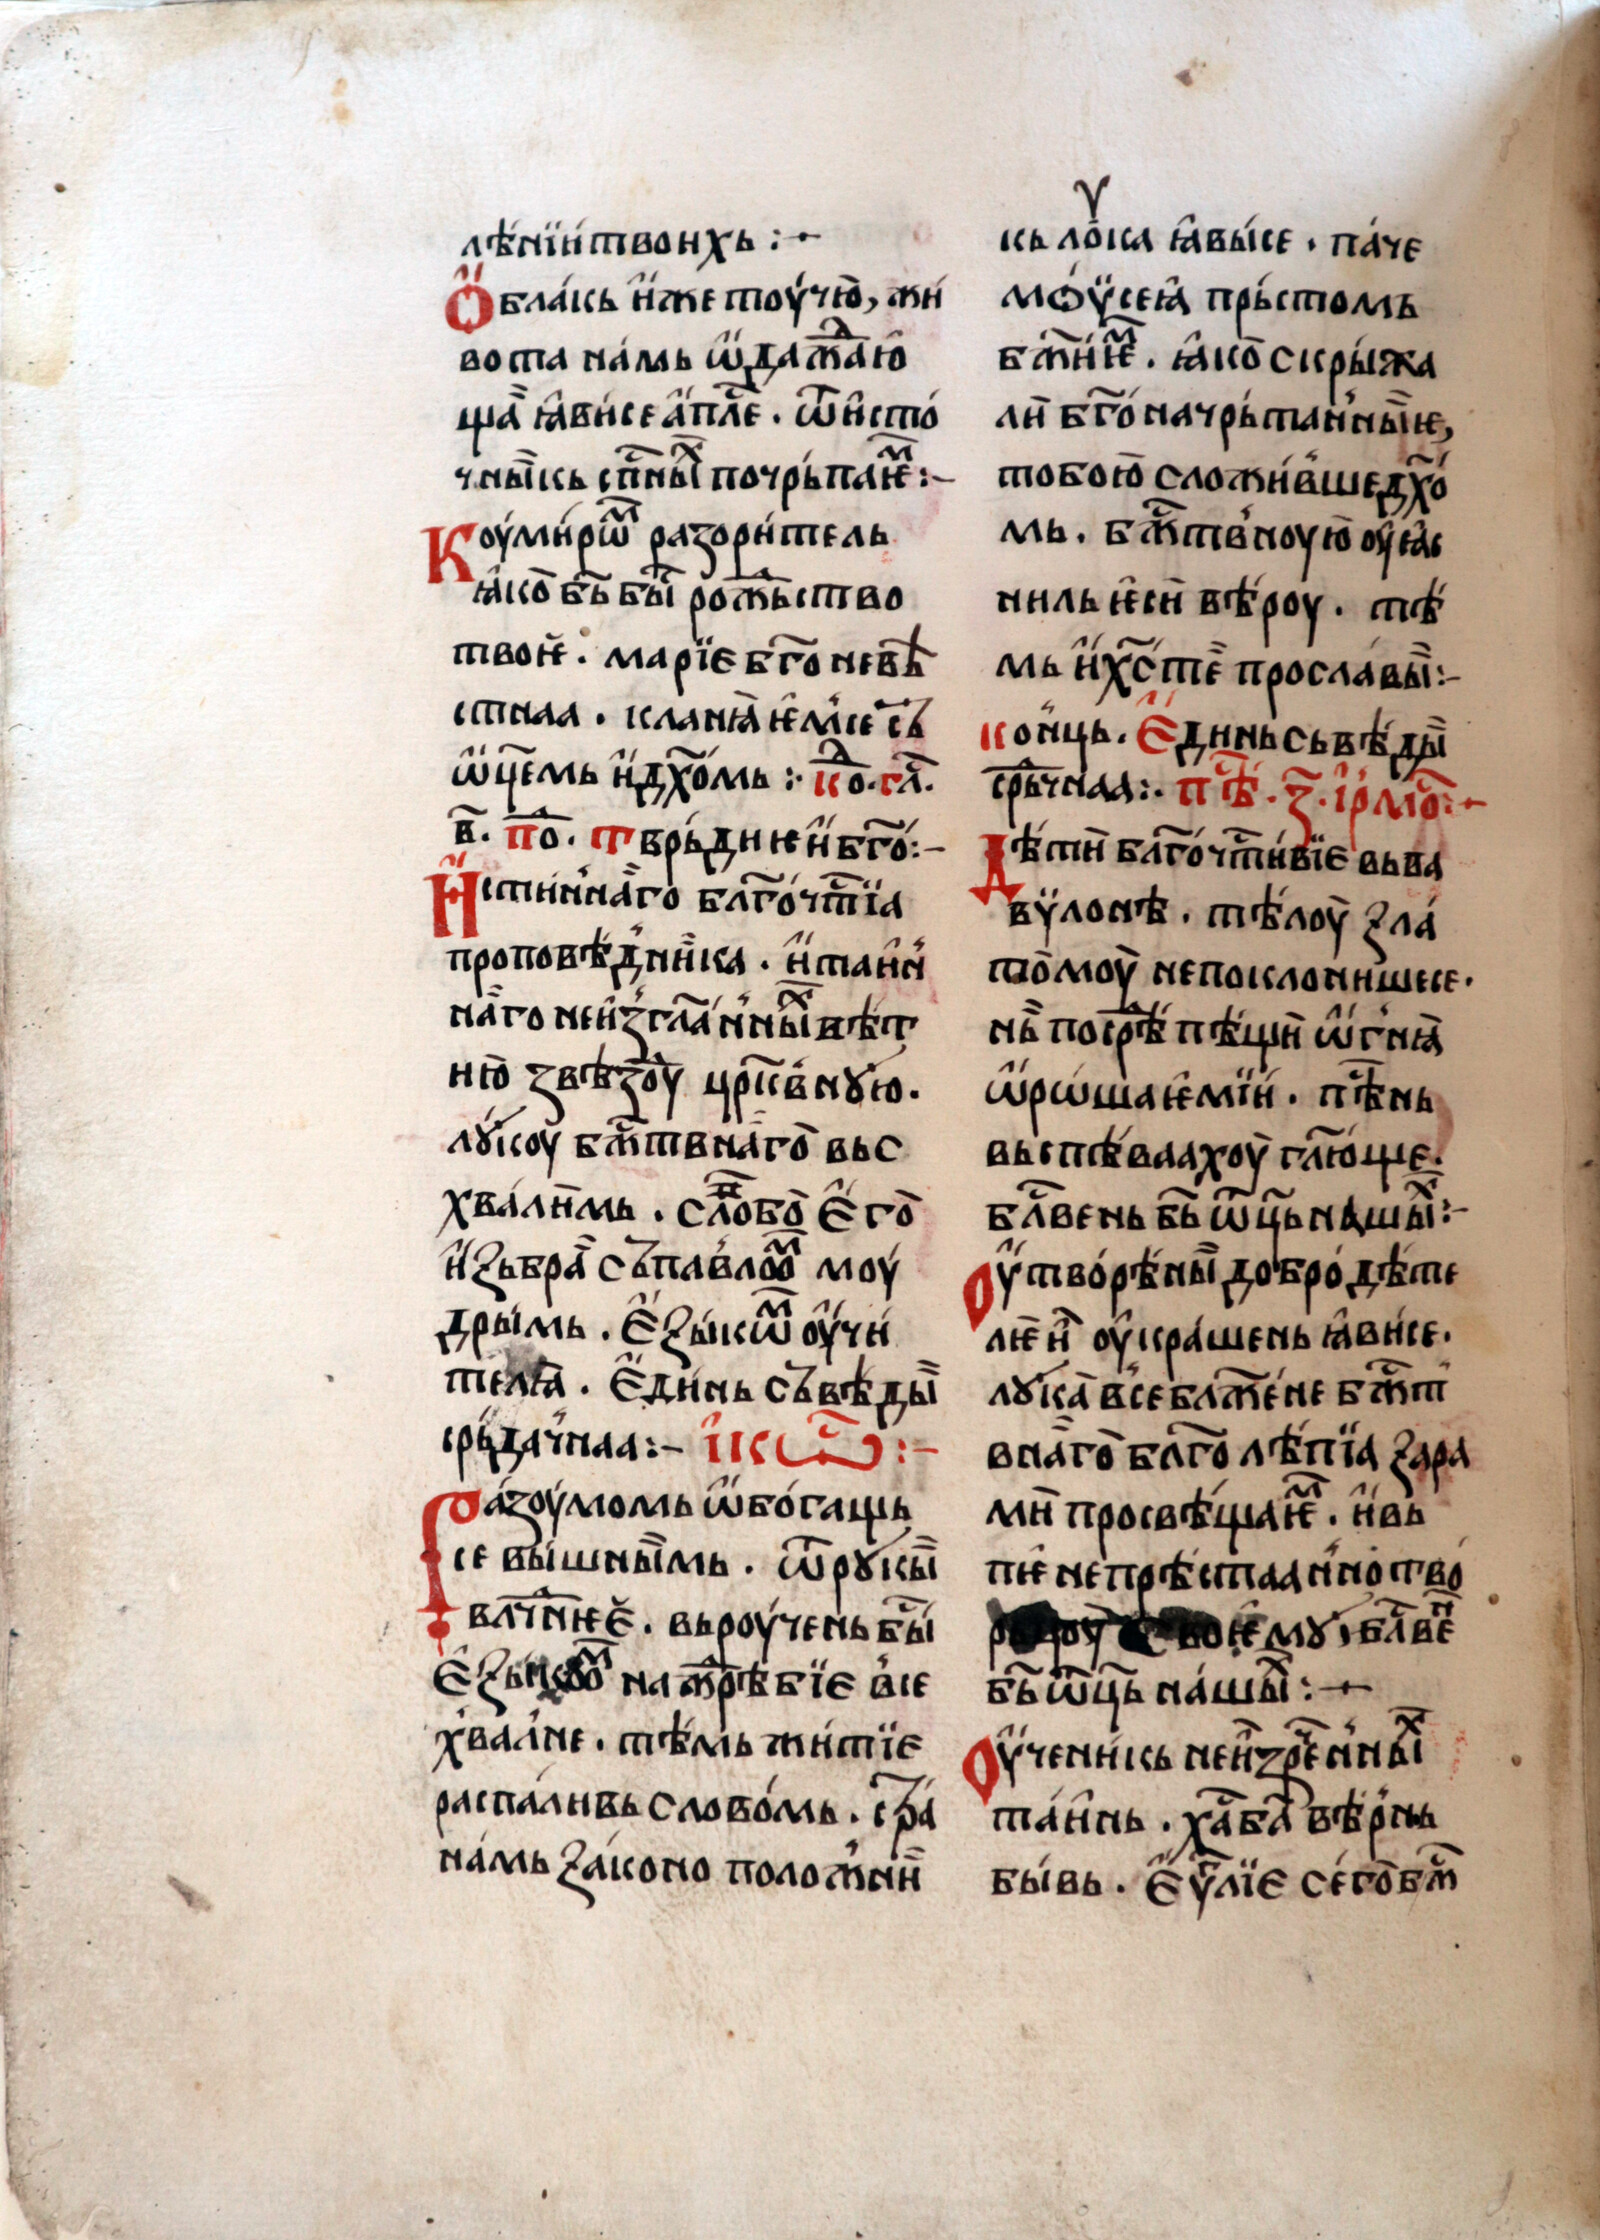 лѣ́нїи́ твоихь :·
Ѻ҆бла́кь и҆же тоу́чю̀, жи
вота на́мь ѡ҆дажⷣаю
ща̀ ꙗ҆ви́се а҆пⷭ҇ле . ѿ и҆сто́
чны̀кь сп҃сны́ⷯ почрь́паѥⷨ :–
Коу́ми́рѡⷨ разори́тель
ꙗ҆ко̀ бь҃ бы̀ рожⷣьство
твоѥ̀ . марїе бг҃оневѣ
стнаа . кланꙗ̀ѥмсе сь
ѡ҆ц҃емь и҆ дх҃о́мь :· коⷣ . гла̀ .
в҃ . поⷣ . Тврь́ди ѥи бг҃о́ :–
И҆сти́нна̀го бл҃го́чтⷭ҇їа
проповѣ́днѝка . и҆ таи҆н
на̀го неи҆зⸯгл҃а́нны́ⷯ вѣт
нію̀ звѣзоу̀ црк҃в́нꙋю .
лꙋ́коу бжⷭ҇твна̀го̀ вьс
хва́лѝмь . сло́бо̀ е҆го̀
и҆зьбра̀ сь па́влоⷨ моу́
дрымь . е҆зы́кѡⷨ оу҆чи́
телꙗ̀ . е҆ди́нь сьвѣ́ды̀
срь́да́чнаа :– і҆коⷭ҇ :–
Ра́зоу́момь ѡ҆бо́гащь
се вы́шны̀мь . ѿ рꙋкы̀
влⷣчнѥѐ . вьроу́чень бы́ⷭ
е҆зы́коⷨ на жрѣ́бїе в́се
х́вал́не . тѣ́мь жи́тїе
распа́ливь слово́мь . срⷣца́
на́мь за́коно полож́нѝ
кь лоу́ка ꙗ҆вы́се . па́че
мѻѵ̈сеꙗ̀ прь́стомь
бж҃і́иѥⷨ . ꙗ҆ко̀ скры́жа
ли̇̀ бг҃о́начрь́таńны̀ѥ,
тобою̀ сложи́в́ше дх҃о́
мь . бжⷭ҇тв́ноую̀ оу҆ꙗ҆с
ниль ѥ҆си̇̀ вѣ́роу . тѣ́
мь и҆ х҃с тѐ просла́вы̀ :–
Кон́ць . Е҆динь сьвѣ́ды̀
срⷣьчнаа :· пѣⷭ . з҃ . і҆рмоⷭ :·
Дѣ́ти̇̀ бл҃го́чтⷭи́вїе вь ва
вѵ̈лонѣ . тѣ́лоу̀ зла́
то̀моу̀ непоклонишесе .
нь̀ посрⷣѣ́ пѣ́щи̇̀ ѡ҆гнꙗ̀
ѡ҆рѡ́шаѥмїи́ . пѣⷭнь
вьспѣ́ваахоу̀ гл҃ю́ще .
блⷭвень бь҃ ѿц҃ь нашы́ⷯ :–
Оу҆тво́рѣ́ны̀ до́бро́дѣте
лѥ́и̇̀ оу҆кра́шень ꙗ҆ви́се .
лꙋка̀ в́себлаже́не бжⷭ҇т
вна̀го̀ бл҃голѣ́пїа зара
ми̇̀ просвѣ́щаѥⷨ . и҆ вь
пѥ̀ непрѣ́стаан́но тво́
воѥ҆мꙋ , бл҃ве́ⷩ
бь҃ ѿц҃ь на́шы̀ :·
Оу҆чени́кь неи҆зрⷱен́ны́ⷯ
та́и҆нь . хаⷭ҇ ба̀ вѣ́рнь
бы́вь . е҆ѵⷢ҇лїе се́го̀ бжⷭ҇